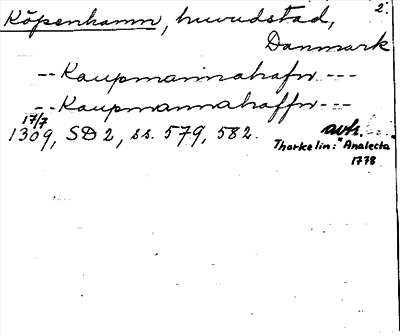 2.
Köpenhamn, huvudstad,
Danmark
-- Kaupmannahafn ---
-- Kaupmannahaffn ---
17/7
1309, SD 2, ss. 579, 582.
avh.
Thorkelin: "Analecta
1778